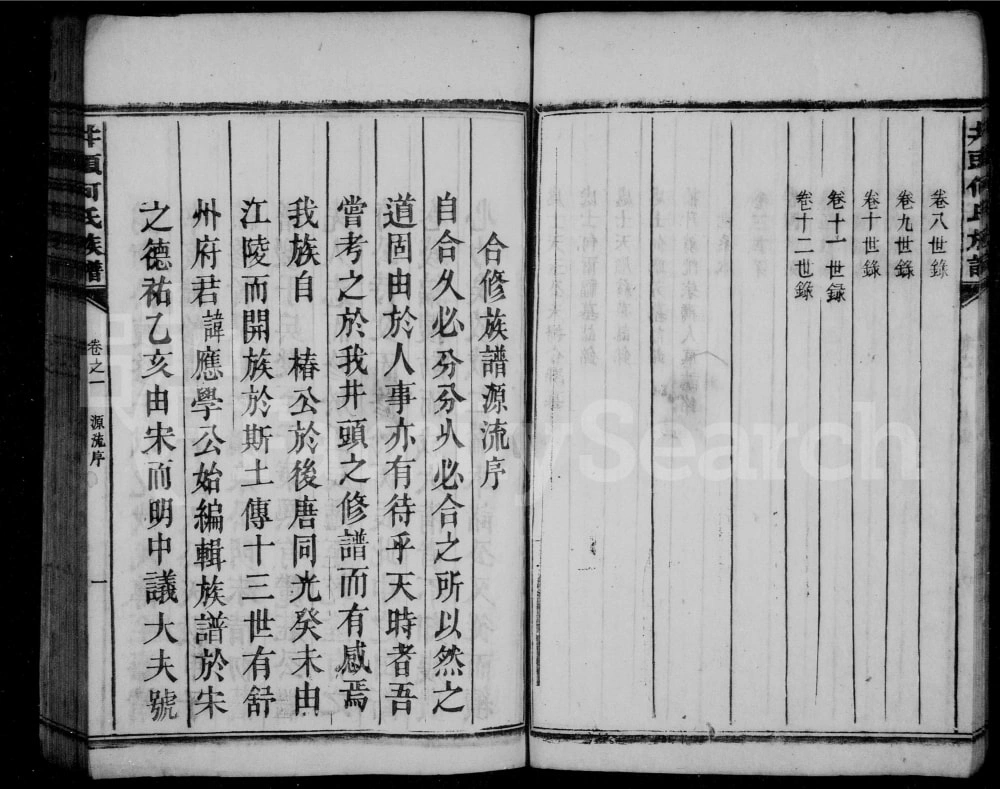 井頭何氏族譜
卷八世錄
卷九世錄
卷十世錄
卷十一世録
卷十二世錄
合修族譜源流序
自合久必分分久必合之所以然之
道固由於人事亦有待乎天時者吾
嘗考之於我井頭之修譜而有感焉
我族自 椿公於後唐同光癸未由
江陵而開族於斯土傳十三世有舒
州府君諱應學公始編輯族譜於宋
之德祐乙亥由宋而明中議大夫號
井頭何氏族譜
卷之一
源流序
一
ySearch